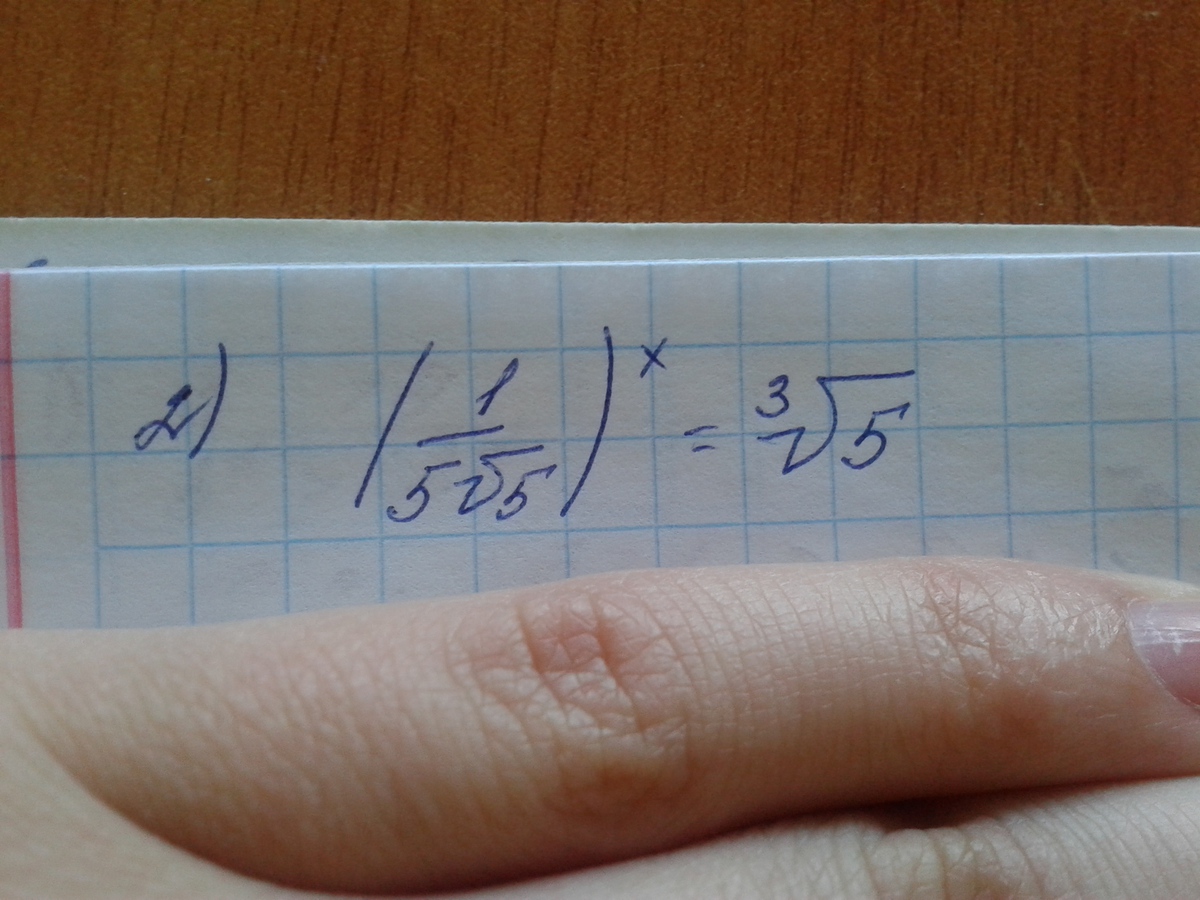 2) (1/(5√5))^x = ∛5